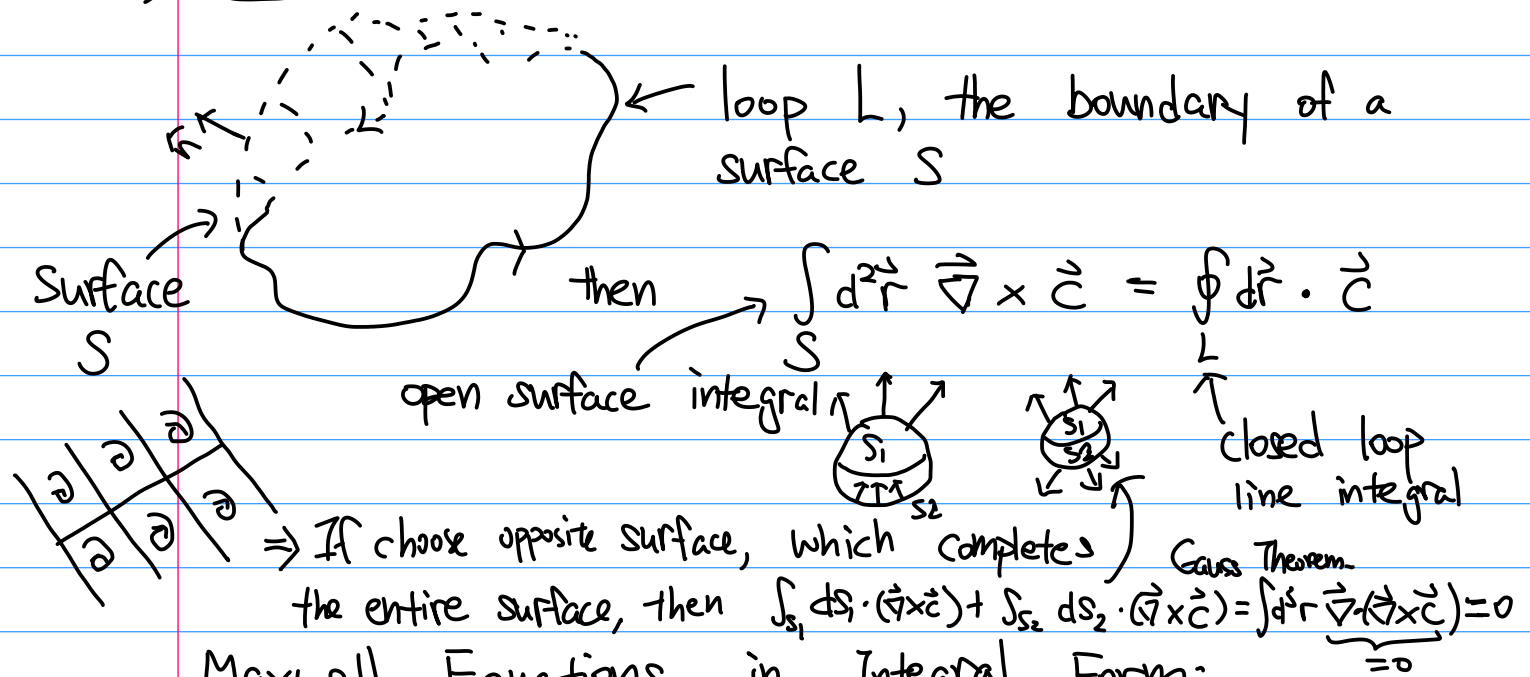 loop L, the boundary of a
surface S
Surface
S
then ∫_S d²r⃗ ∇⃗ × c⃗ = ∮_L dr⃗ · c⃗
open surface integral
S1
S2
S1
S2
closed loop
line integral
⇒ If choose opposite surface, which completes
Gauss Theorem
the entire surface, then ∫_S₁ dS₁·(∇⃗×c⃗) + ∫_S₂ dS₂·(∇⃗×c⃗) = ∫d³r ∇⃗·(∇⃗×c⃗) = 0
=0
Maxwell Equations in Integral Form: